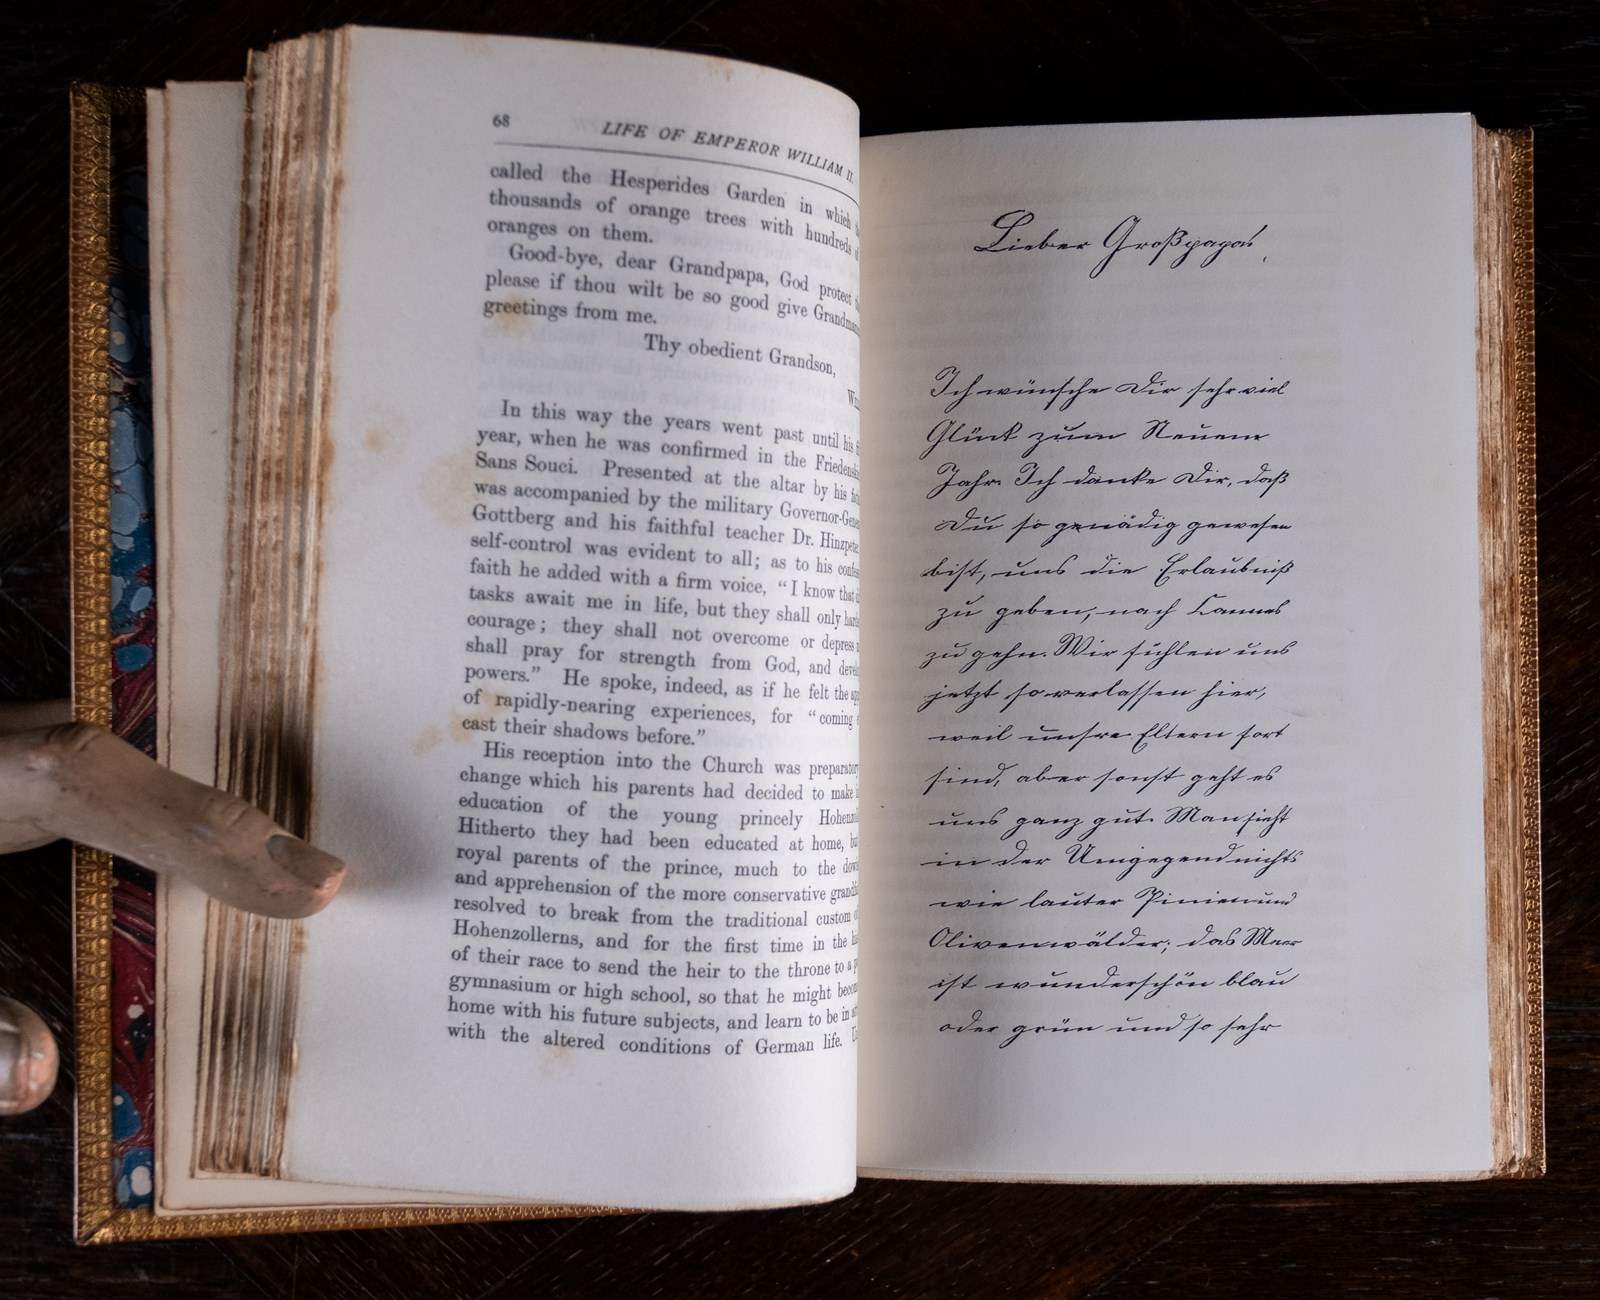 68 LIFE OF EMPEROR WILLIAM II.
called the Hesperides Garden in which
thousands of orange trees with hundreds
oranges on them.
Good-bye, dear Grandpapa, God protect
please if thou wilt be so good give Grandmamma
greetings from me.
Thy obedient Grandson,
In this way the years went past until his
year, when he was confirmed in the
Sans Souci. Presented at the altar by his
was accompanied by the military
Gottberg and his faithful teacher Dr.
self-control was evident to all; as to his
faith he added with a firm voice, “I know that
tasks await me in life, but they shall only
courage; they shall not overcome or depress
shall pray for strength from God, and
powers.” He spoke, indeed, as if he felt the
of rapidly-nearing experiences, for “coming
cast their shadows before.”
His reception into the Church was preparatory
change which his parents had decided to make
education of the young princely
Hitherto they had been educated at home,
royal parents of the prince, much to the
and apprehension of the more conservative
resolved to break from the traditional custom
Hohenzollerns, and for the first time in the
of their race to send the heir to the throne to a
gymnasium or high school, so that he might
home with his future subjects, and learn to be in
with the altered conditions of German life.
Lieber Großpapa,
Ich wünsche Dir sehr viel
Glück zum Neuem
Jahr. Ich danke Dir, daß
Du so genädig gewesen
bist, uns die Erlaubniß
zu geben, nach Cannes
zu gehn. Wir fühlen uns
jetzt so verlassen hier,
weil unsre Eltern fort
sind, aber sonst geht es
uns ganz gut. Man sieht
in der Umgegend nichts
wie lauter Pinien und
Olivenwälder; das Meer
ist wunderschön blau
oder grün und so sehr